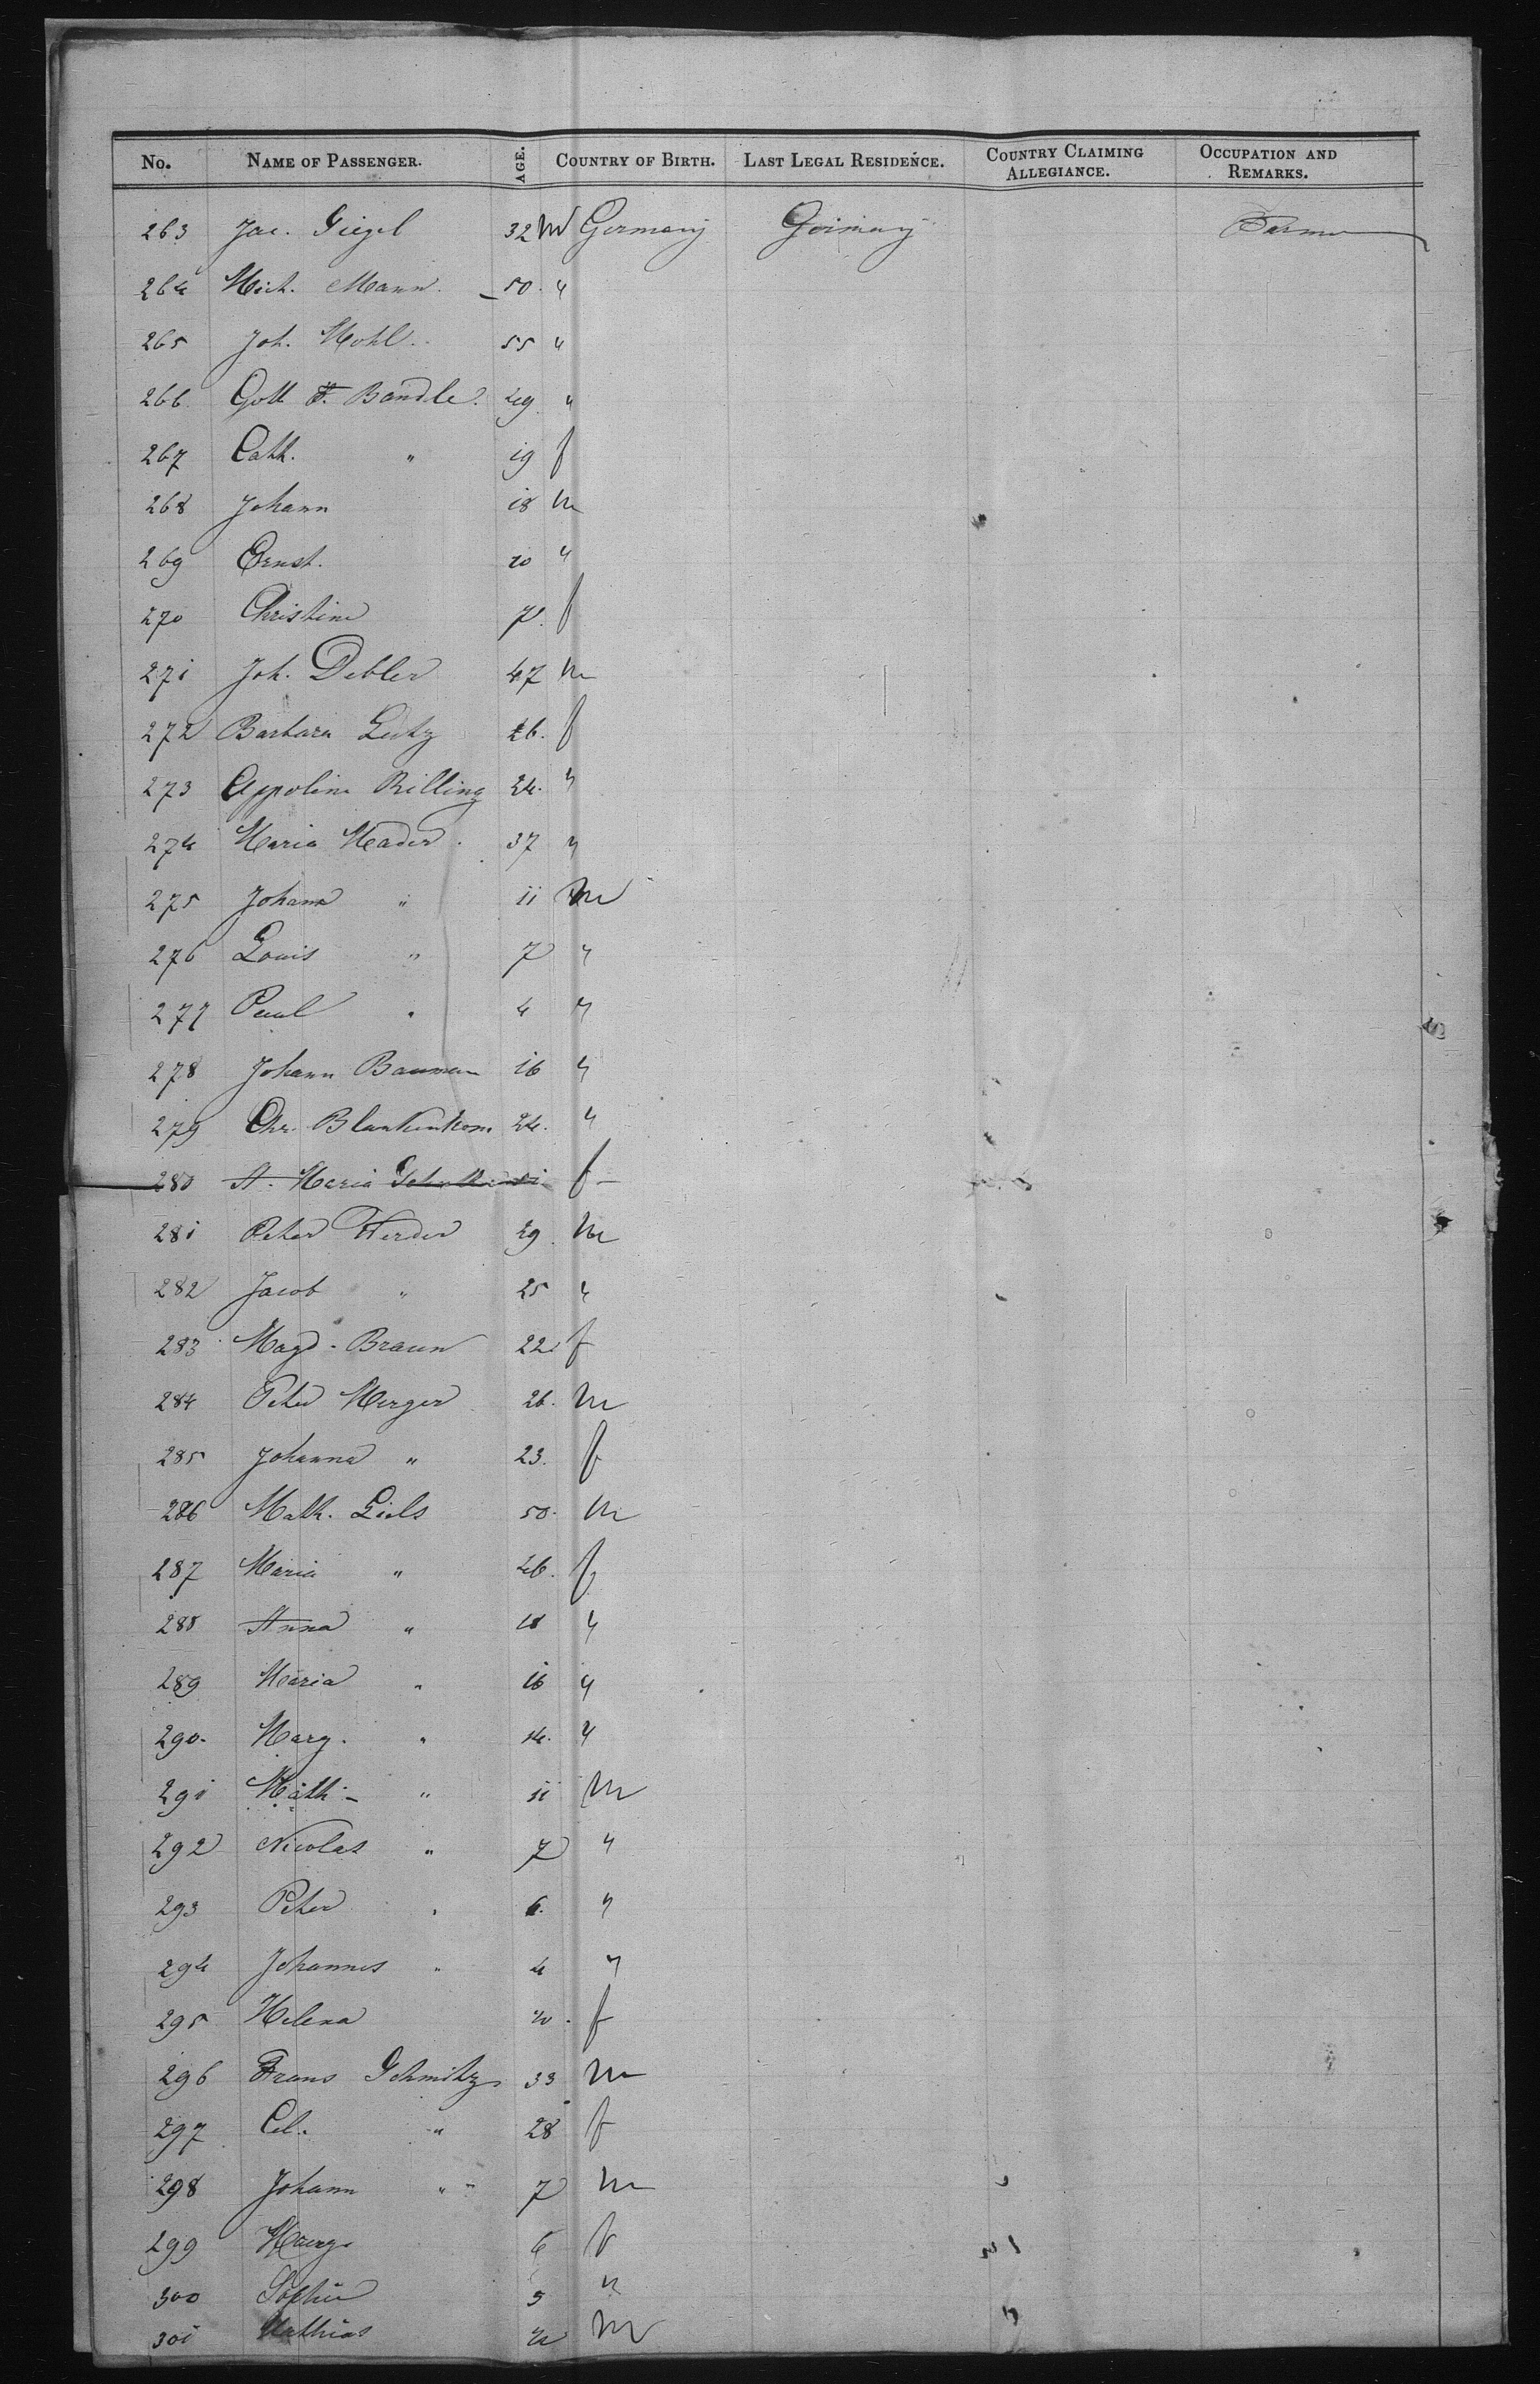 No. NAME OF PASSENGER. AGE. COUNTRY OF BIRTH. LAST LEGAL RESIDENCE. COUNTRY CLAIMING ALLEGIANCE. OCCUPATION AND REMARKS.
263 Jac. Giegel 32 m Germany Germany Farmer
264 Mich. Mann. 50. "
265 Joh. Mohl. 55 "
266 Gott F. Bandle. 49 "
267 Cath. " 19 f
268 Johann 18 m
269 Ernst. "
270 Christine f
271 Joh. Debler 47 m
272 Barbara Lutz 26. f
273 Appolina Billing 24. "
274 Maria Mader. 37 "
275 Johann " 11 m
276 Louis " 7 "
277 Paul " 4 "
278 Johann Bauman 16 "
279 Chr. Blankenhorn 24. "
280 A. Maria f
281 Peter Werder 29. m
282 Jacob " 25 "
283 Magd. Braun 22 f
284 Peter Merger 26. m
285 Johanna " 23. f
286 Math. Giels 50. m
287 Maria " 46. f
288 Anna " 18 "
289 Maria " 16 "
290. Marg. " 14. "
291 Math. " 11 m
292 Nicolas " 7 "
293 Peter " 6. "
294 Johannes " 4 "
295 Helena f
296 Frans Schmitz 33 m
297 Cel. " 28 f
298 Johann " 7 m
299 Marg. 6 f
300 Sophie 5 "
301 Mathias m